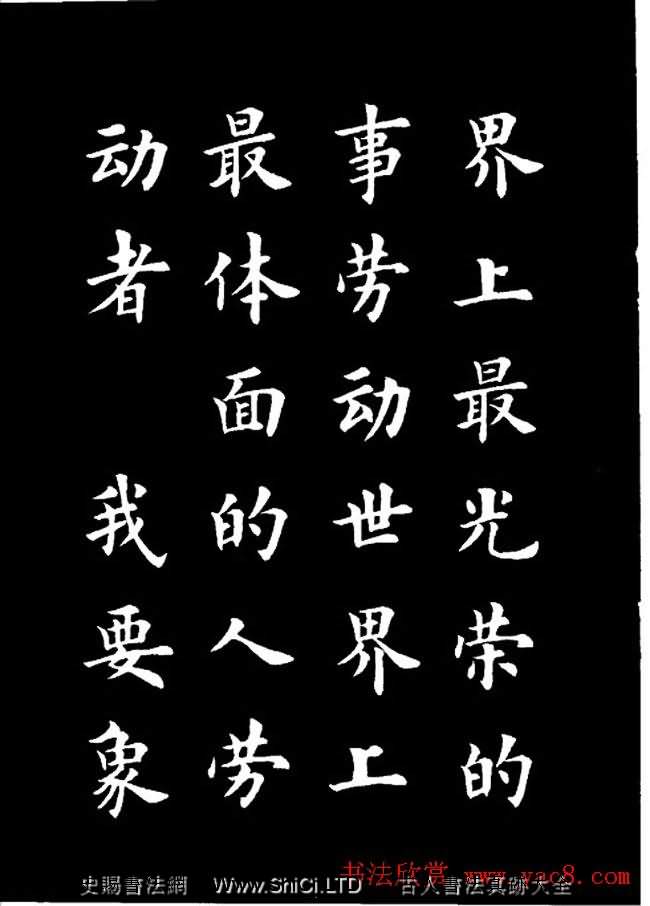 界上最光荣的
事劳动世界上
最体面的人劳
动者 我要象
书法欣赏 www.yac8.com
史赐書法網 Www.ShiCi.LTD 古人書法真跡大全